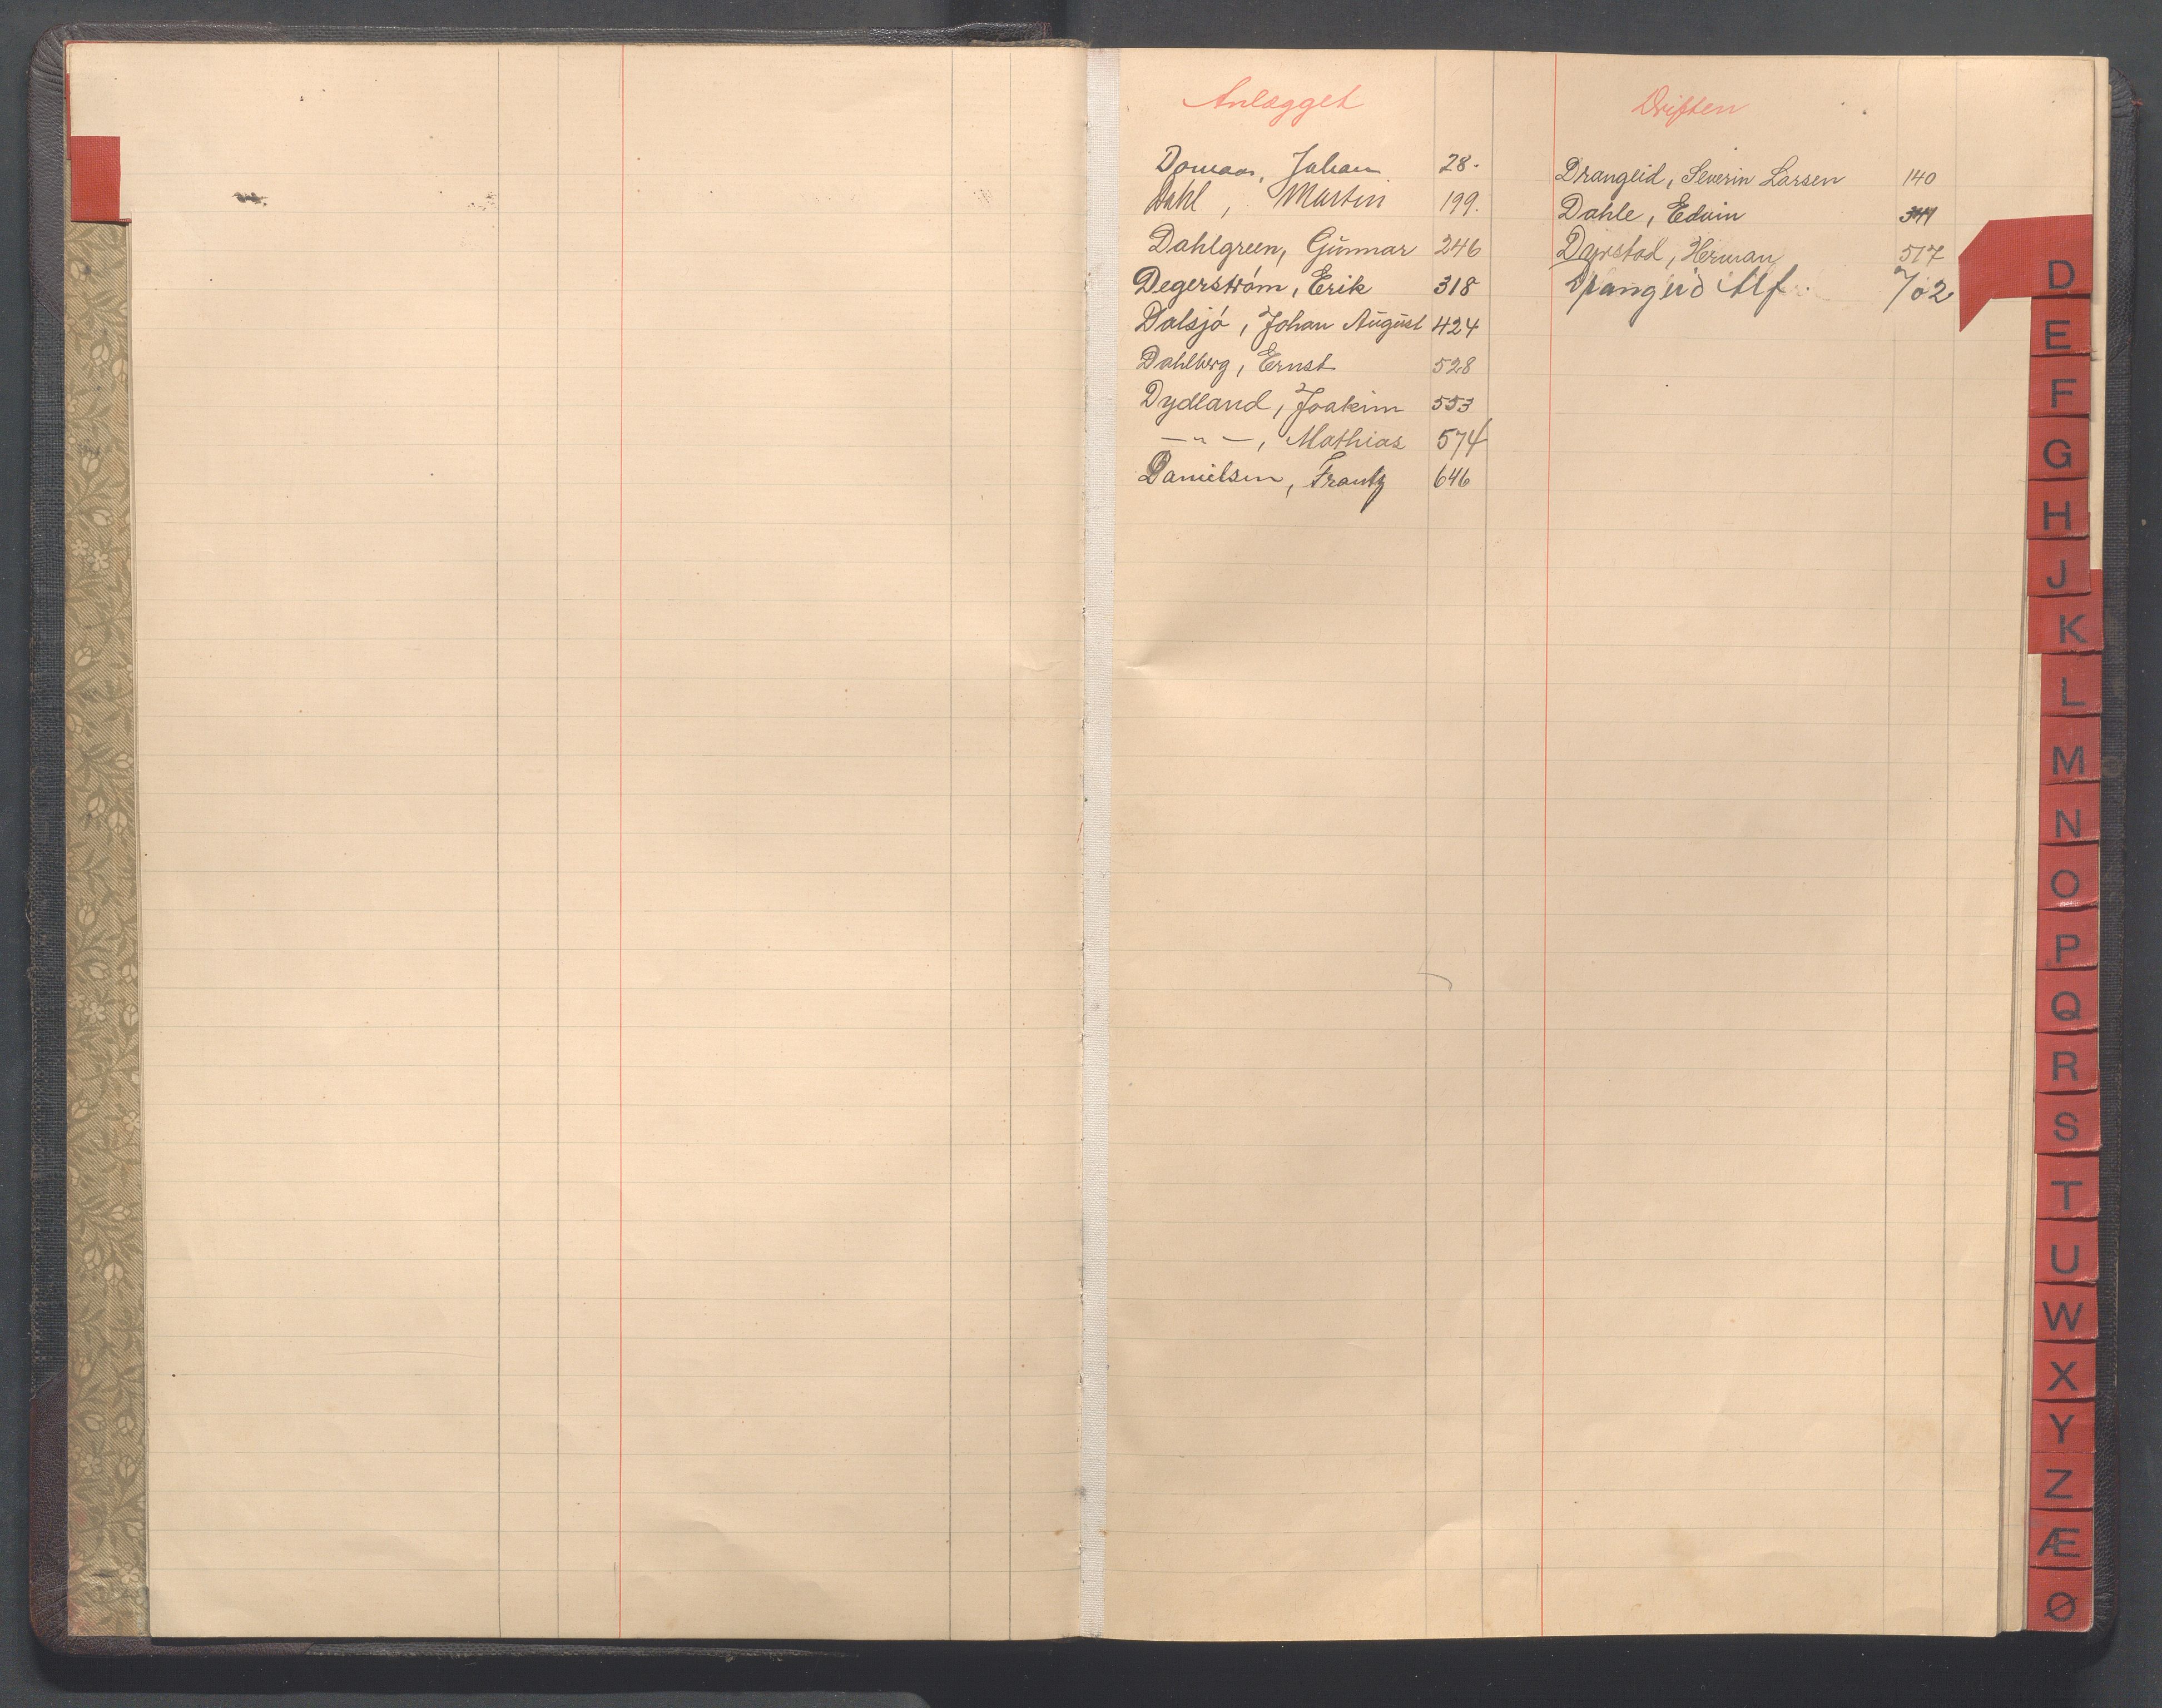 Anlægget
Domaas, Johan 28.
Dahl, Martin 199.
Dahlgreen, Gunnar 246
Degerström, Erik 318
Dalsjö, Johan August 424
Dahlberg, Ernst 528
Dydland, Joakim 553
— " —, Mathias 574
Danielsen, Frantz 646
Driften
Drangeid, Severin Larsen 140
Dahle, Edvin
Dyrstad, Herman 517
Drangeid Alf 702
D
E
F
G
H
J
K
L
M
N
O
P
Q
R
S
T
U
W
X
Y
Z
Æ
Ø